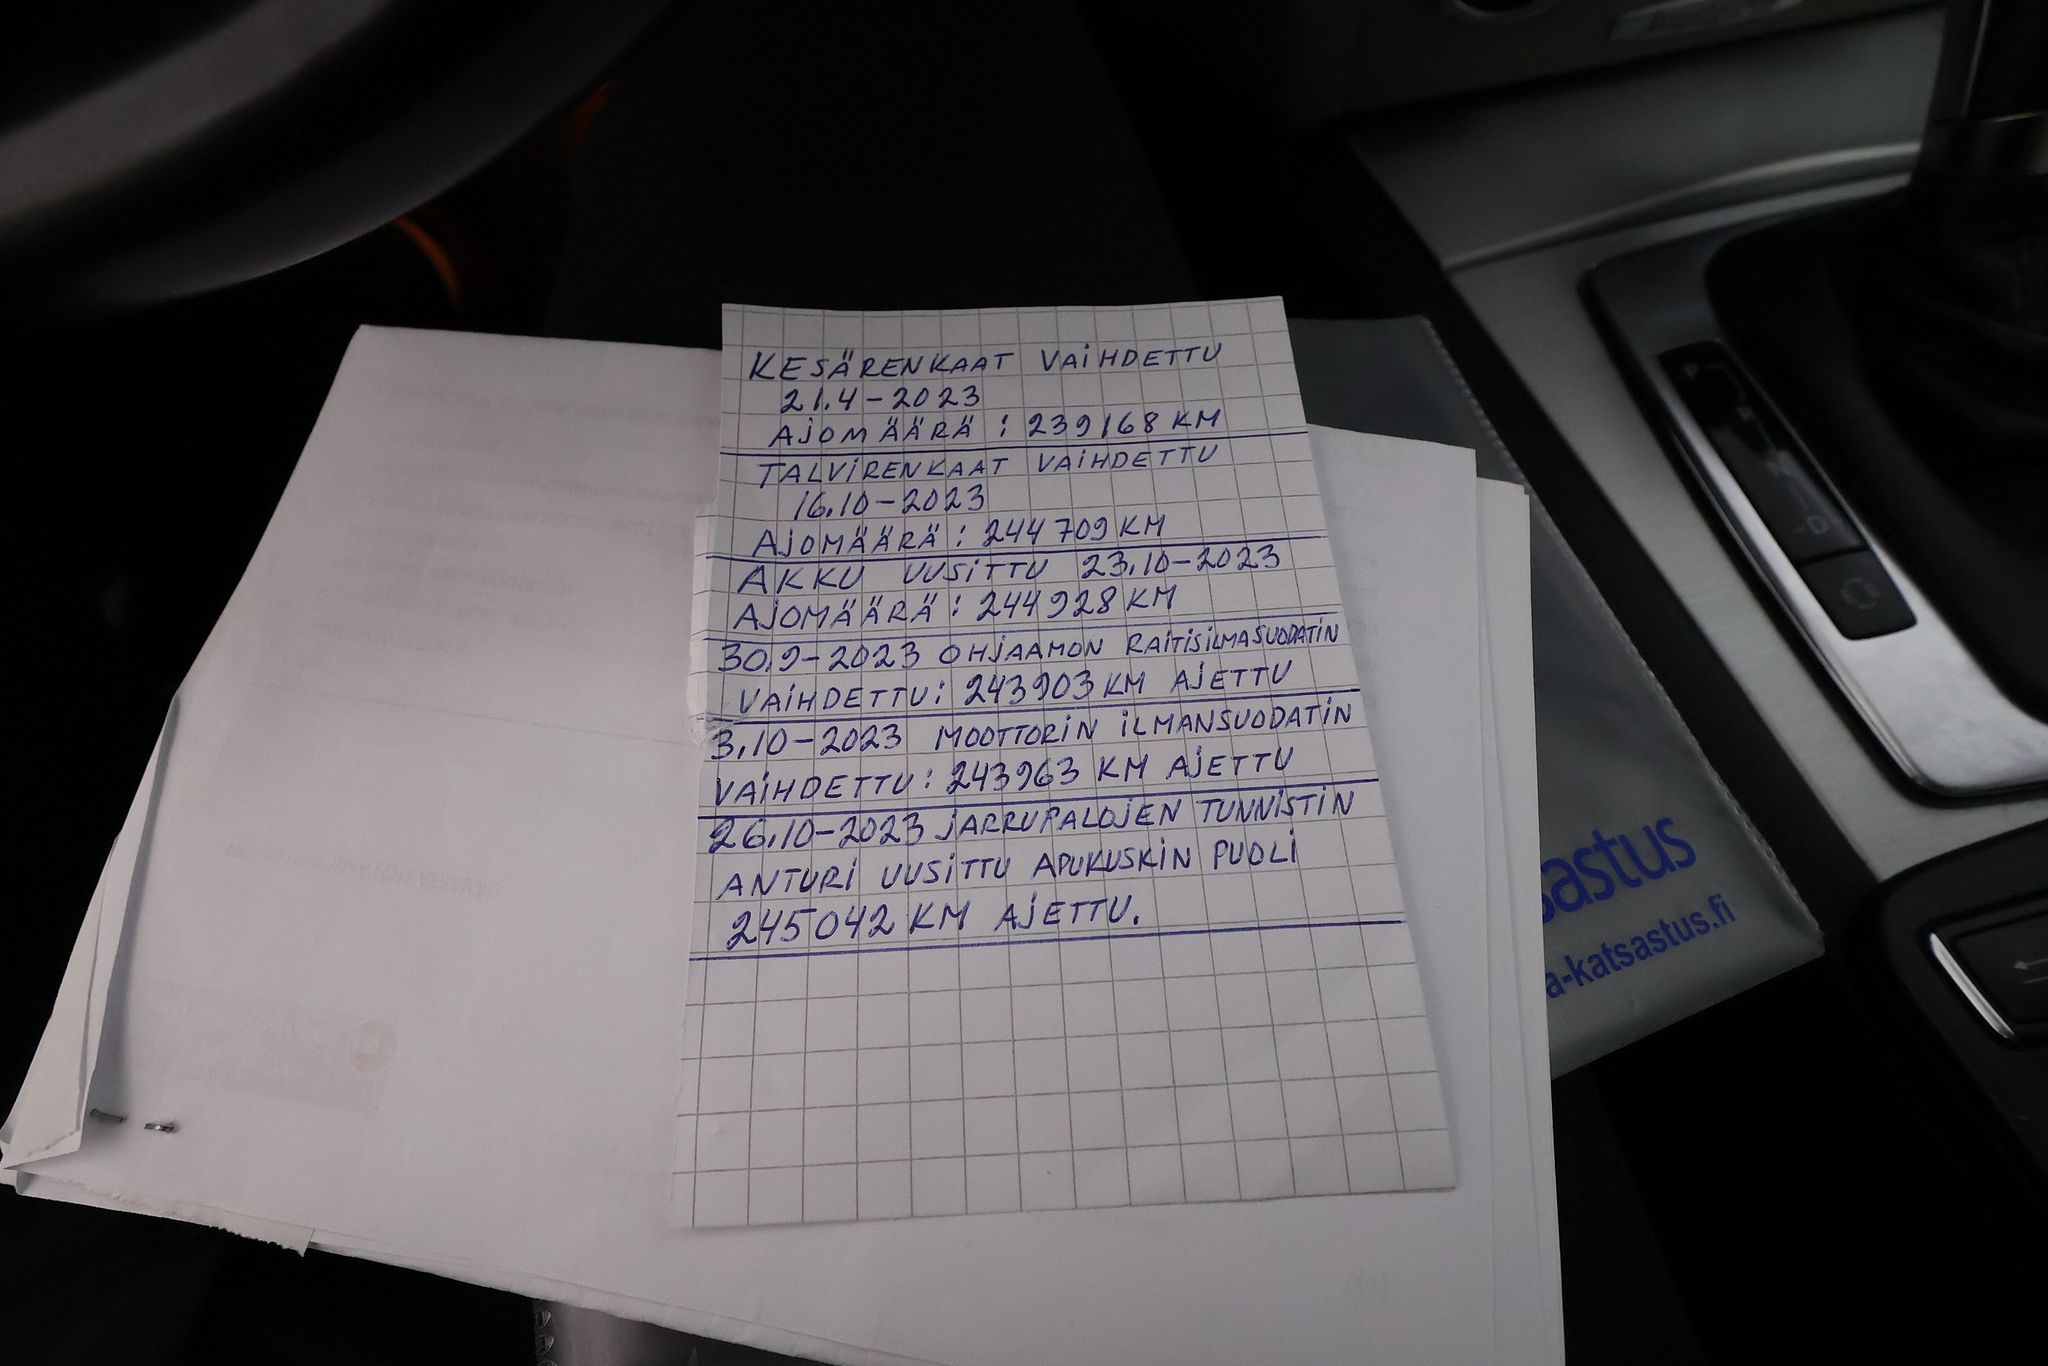 KESÄRENKAAT VAIHDETTU
21.4-2023
AJOMÄÄRÄ: 239168 KM
TALVIRENKAAT VAIHDETTU
16.10-2023
AJOMÄÄRÄ: 244709 KM
AKKU UUSITTU 23.10-2023
AJOMÄÄRÄ: 244928 KM
30.9-2023 OHJAAMON RAITISILMASUODATIN
VAIHDETTU: 243903 KM AJETTU
3.10-2023 MOOTTORIN ILMANSUODATIN
VAIHDETTU: 243963 KM AJETTU
26.10-2023 JARRUPALOJEN TUNNISTIN
ANTURI UUSITTU APUKUSKIN PUOLI
245042 KM AJETTU.
sastus
a-katsastus.fi
P
R
N
D